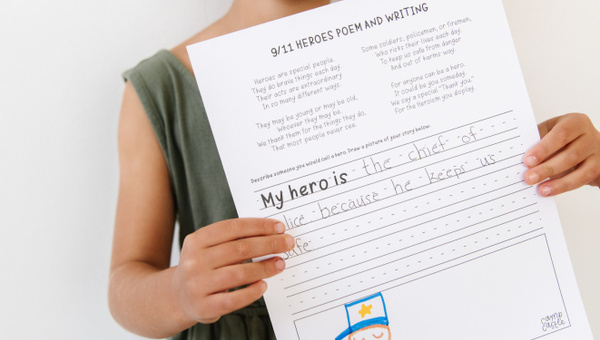 9/11 HEROES POEM AND WRITING
Heroes are special people.
They do brave things each day.
Their acts are extraordinary
In so many different ways.
They may be young or may be old,
Whoever they may be.
We thank them for the things they do,
That most people never see.
Some soldiers, policemen, or firemen,
Who risk their lives each day.
To keep us safe from danger
And out of harms way.
For anyone can be a hero.
It could be you someday.
We say a special "Thank you,"
For the heroism you display.
Describe someone you would call a hero. Draw a picture of your story below.
My hero is the chief of
olice because he keeps us
safe
camp
castle